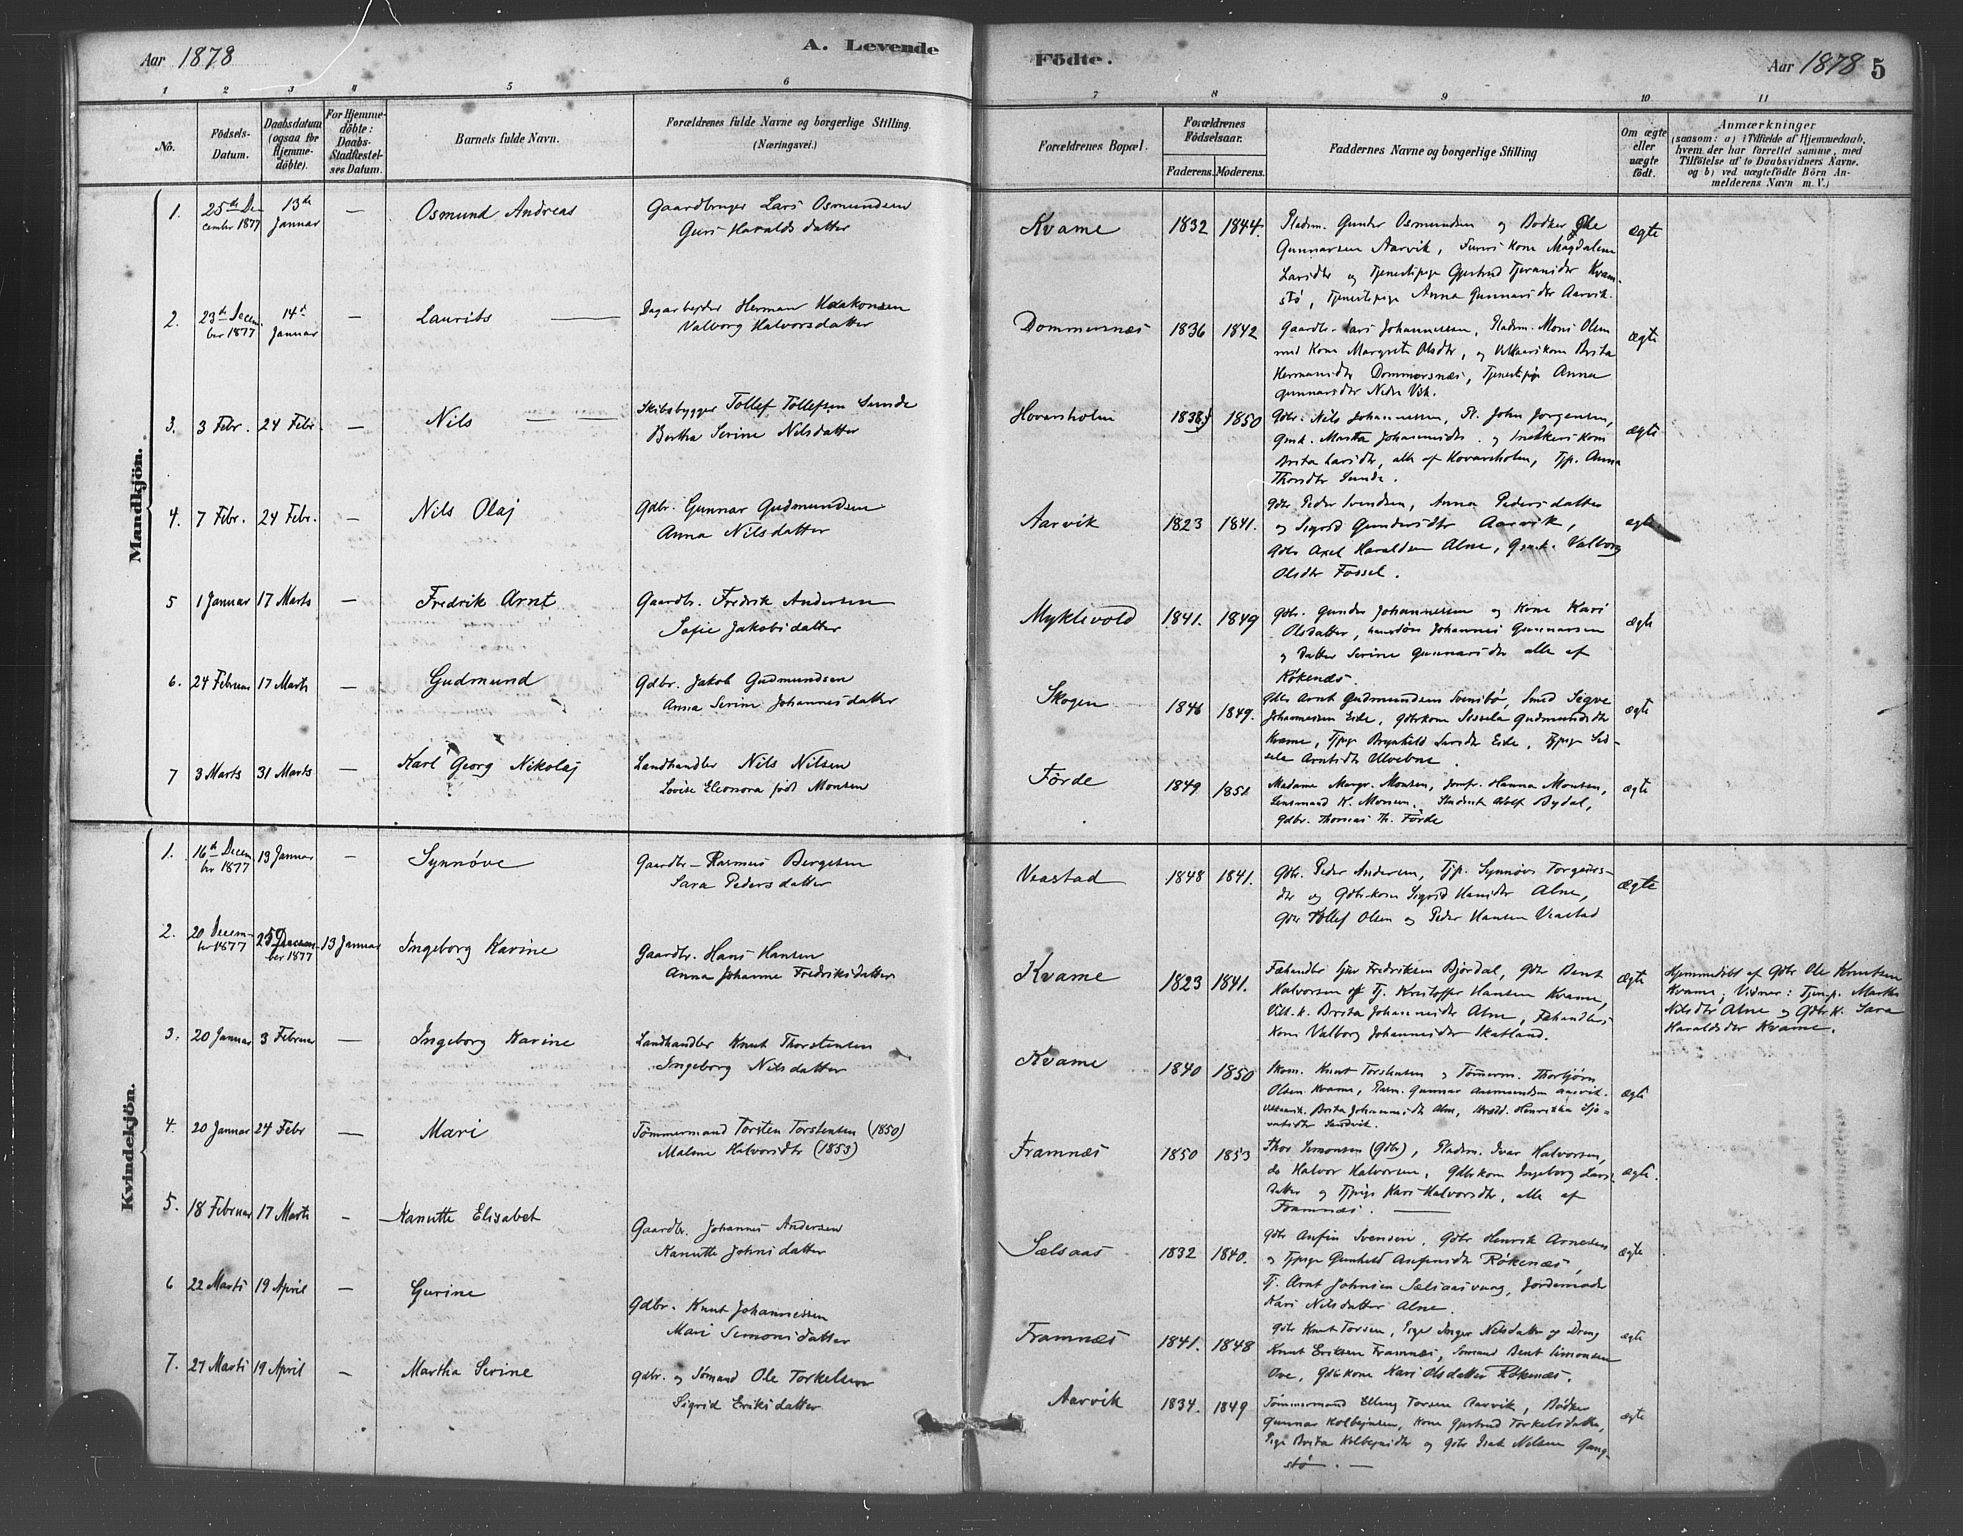 Aar 1878
A. Levende
Födte.
Aar 1878 5
1 2 3 4 5 6 7 8 9 10 11
No.
Födsels-Datum.
Daabsdatum (ogsaa for Hjemme-döbte).
For Hjemme-döbte: Daabs-Stadfæstel-ses Datum.
Barnets fulde Navn.
Forældrenes fulde Navne og borgerlige Stilling.
(Næringsvei.)
Forældrenes Bopæl.
Forældrenes Födselsaar.
Faderens. Moderens.
Faddernes Navne og borgerlige Stilling
Om ægte eller uægte födt.
Anmærkninger
(saasom: a) i Tilfælde af Hjemmedaab,
hvem der har forrettet samme, med
Tilföielse af to Daabsvidners Navne.
og b) ved uægtefödte Börn An-
melderens Navn m. V.)
Mandkjön.
1. 25de De- 13de — Osmund Andreas Gaardbruger Lars Osmundsen
cember 1877 Januar Guri Haralds datter
Kvame 1832 1844. Pladsm. Gunder Osmundsen og Bødker Ole ægte
Gunnarsen Aarvik, kone Magdalene
Larsdtr og Tjenestepige Gjertrud Kvam-
stø, Tjenestepige Anna Gunnarsdtr Aarvik.
2. 23de Decem- 14de — Laurits Dagarbejder Herman Haakonsen
ber 1877 Januar Valborg Halvorsdatter
Dommersnæs 1836 1842 Gaardbr. Lars Johannessen, Pladsm. Mons Olsen ægte
med Kone Margrete Olsdtr, og Brita
Hermansdtr Dommersnæs, Tjenestepige Anna
Gunnarsdtr Nedre Vik.
3. 3 Febr. 24 Febr. — Nils Skibsbygger Tollef Tollefsen Sunde
Bertha Serine Nilsdatter
Hovarsholm 1838 1850 Gdbr. Nils Johannessen, Pl. John Jørgensen, ægte
Martha Johannesdtr. og kone
Brita Larsdtr, alle af Hovarsholm, Tjp. Anna
Thorsdtr Sunde.
4. 7 Febr. 24 Febr. — Nils Olaj Gdbr. Gunnar Gudmundsen
Anna Nilsdatter
Aarvik 1823 1841. Gdbr Peder Svendsen, Anna Pedersdatter ægte
og Sigrid Gundersdtr Aarvik,
Gdbr Axel Haraldsen Alne, Valborg
Olsdtr Fossel.
5 1 Januar 17 Marts — Fredrik Arnt Gaardbr. Fredrik Andersen
Sofie Jakobsdatter
Myklevold 1841. 1849 Gdbr. Gunder Johannessen og Kone Kari ægte
Olsdatter, Johannes Gunnarsen
og Datter Serine Gunnarsdtr alle af
Røkenæs.
6. 24 Februar 17 Marts — Gudmund Gdbr. Jakob Gudmundsen
Anna Serine Johannesdatter
Skogen 1846 1849. Gdbr Arnt Gudmundsen Svensbø, Smed Sigve ægte
Johannessen Eide, Gdbrkone Sessela Gudmundsdtr
Kvame, Tjpige Brynhild Larsdtr Eide, Tjpige Ses-
sela Arntsdtr Ulvebne.
7 3 Marts 31 Marts — Karl Georg Nikolaj Landhandler Nils Nilsen
Lovise Eleonora født Monsen
Förde 1849 1851 Madame Margr. Monsen, Jomfr. Hanna Monsen, ægte
Lensmand K. Monsen, Student Adolf Bydal,
Gdbr. Thomas Th. Förde
Kvindekjön.
1. 16de Decem- 13 Januar — Synnøve Gaardbr. Rasmus Bergesen
ber 1877 Sara Pedersdatter
Veastad 1848 1841. Gdbr. Peder Andersen, Tjp. Synnøve Torgeirs- ægte
dtr og Gdbrkone Sigrid Hansdtr Alne,
Gdbr Tollef Olsen og Peder Hansen Veastad
2. 20 Decem- 25 Decem- 13 Januar Ingeborg Karine Gaardbr. Hans Hansen
ber 1877 ber 1877 Anna Johanne Fredriksdatter
Kvame 1823 1841. Fæhandler Fredriksen Bjordal, Gdbr Bent ægte
Halvorsen og Tj. Kristoffer Hansen Kvame,
Brita Johannesdtr Alne, Fæhandler-
kone Valborg Johannesdtr Skatland.
Hjemmedøbt af Gdbr Ole Knutsen
Kvame, Vidner: Tjenp. Martha
Nilsdtr Alne og Gdbrk. Sara
Haraldsdtr Kvame.
3. 20 Januar 3 Februar — Ingeborg Karine Landhandler Knut Thorstensen
Ingeborg Nilsdatter
Kvame 1840 1850 Skom. Knut Torstensen og Tømmerm. Thorbjørn ægte
Olsen Kvame, Gunnar Aarvik.
Brita Johannesdtr Alne, Henrikka Sjo-
vatsdtr Sandvik.
4. 20 Januar 24 Febr — Mari Tømmermand Torsten Torstensen (1850)
Malene Halvorsdtr (1853)
Framnæs 1850 1853 Thor Simonsen (Gdbr), Pladsm. Ivar Halvorsen, ægte.
do Halvor Halvorsen, Gdbrkone Ingeborg Lars-
datter og Tjpige Kari Halvorsdtr, alle af
Framnæs.
5. 18 Februar 17 Marts — Kanutte Elisabet Gaardbr. Johannes Andersen
Kanutte Johnsdatter
Sælsaas 1832 1840. Gdbr Anfin Svensen, Gdbr Henrik Arnesen ægte
og Tjpige Gunhild Anfinsdtr Røkenæs,
Tj. Arnt Johnsen Sælsaasvaag, Jordemoder
Kari Nilsdatter Alne.
6 22 Marts 19 April — Gurine Gdbr. Knut Johannessen
Mari Simonsdatter
Framnæs 1841. 1848 Gdbr Knut Torsen, Pige Inger Nilsdatter og Dreng ægte
Knut Eriksen Framnæs, Sømand Bent Simonsen
Ove, Gdbkone Kari Olsdatter Røkenæs.
7. 27 Marts 19 April — Martha Serine Gdbr. og Sømand Ole Torkelsen
Sigrid Eriksdatter
Aarvik 1834. 1849 Tømmermand Elling Torsen Aarvik, Bødker ægte
Gunnar Kolbejnsen, Kone Gjertrud Torkelsdatter,
Pige Brita Kolbejnsdtr og Gdbr Isak Nilsen Gang-
stø. —